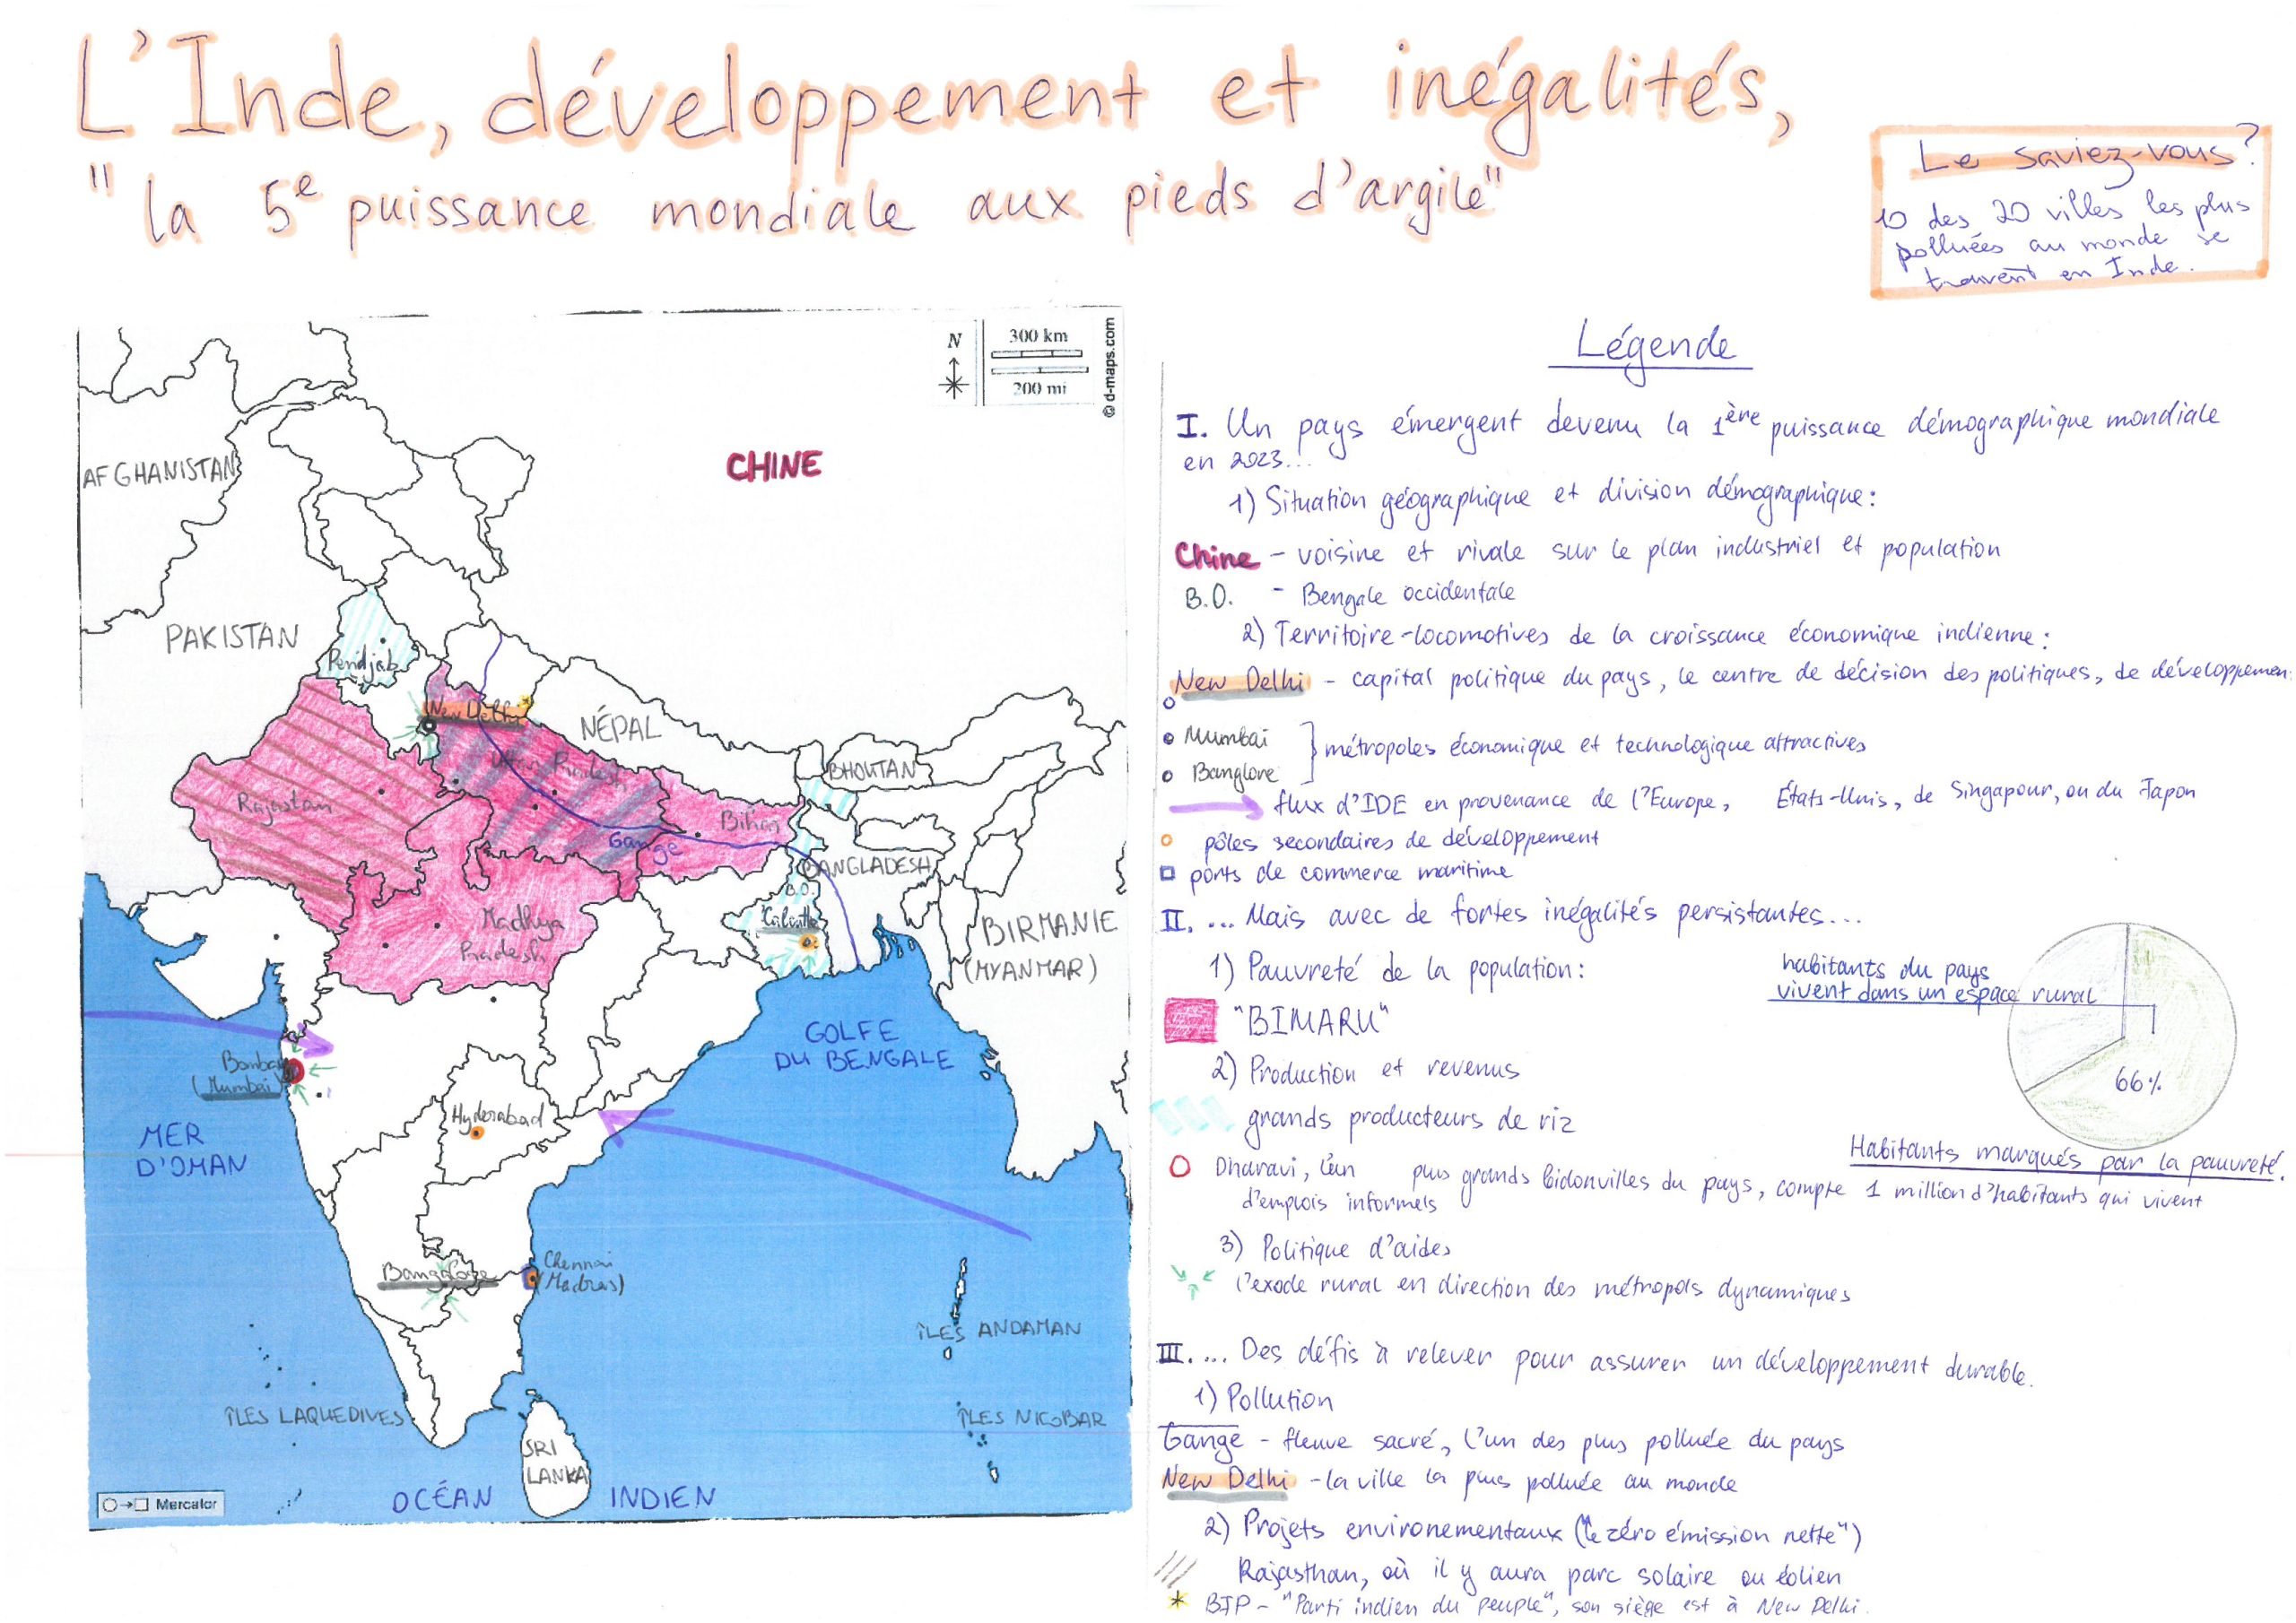 L'Inde, développement et inégalités,
"la 5e puissance mondiale aux pieds d'argile"
Le saviez-vous?
10 des 20 villes les plus
polluées au monde se
trouvent en Inde.
N
300 km
200 mi
© d-maps.com
CHINE
AFGHANISTAN
PAKISTAN
Pendjab
New Delhi
NÉPAL
BHOUTAN
Rajastan
Uttar Pradesh
Bihar
Gange
BANGLADESH
B.O.
Calcutta
Madhya
Pradesh
BIRMANIE
(MYANMAR)
GOLFE
DU BENGALE
Bombay
(Mumbai)
MER
D'OMAN
Hyderabad
Bangalore
Chennai
(Madras)
ÎLES ANDAMAN
ÎLES LAQUEDIVES
ÎLES NICOBAR
SRI
LANKA
OCÉAN INDIEN
Mercator
Légende
I. Un pays émergent devenu la 1ère puissance démographique mondiale
en 2023...
1) Situation géographique et division démographique:
Chine - voisine et rivale sur le plan industriel et population
B.O. - Bengale occidentale
2) Territoire-locomotives de la croissance économique indienne:
New Delhi - capital politique du pays, le centre de décision des politiques, de développemen
Mumbai
Banglore
métropoles économique et technologique attractives
flux d'IDE en provenance de l'Europe, États-Unis, de Singapour, ou du Japon
pôles secondaires de développement
ports de commerce maritime
II. ... Mais avec de fortes inégalités persistantes...
1) Pauvreté de la population:
habitants du pays
vivent dans un espace rural
"BIMARU"
66%
2) Production et revenus
grands producteurs de riz
Habitants marqués par la pauvreté.
Dharavi, l'un plus grands bidonvilles du pays, compte 1 million d'habitants qui vivent
d'emplois informels
3) Politique d'aides
l'exode rural en direction des métropols dynamiques
III. ... Des défis à relever pour assurer un développement durable.
1) Pollution
Gange - fleuve sacré, l'un des plus polluée du pays
New Delhi - la ville la plus polluée au monde
2) Projets environementaux ("le zéro émission nette")
Rajasthan, où il y aura parc solaire ou éolien
* BJP - "Parti indien du peuple", son siège est à New Delhi.